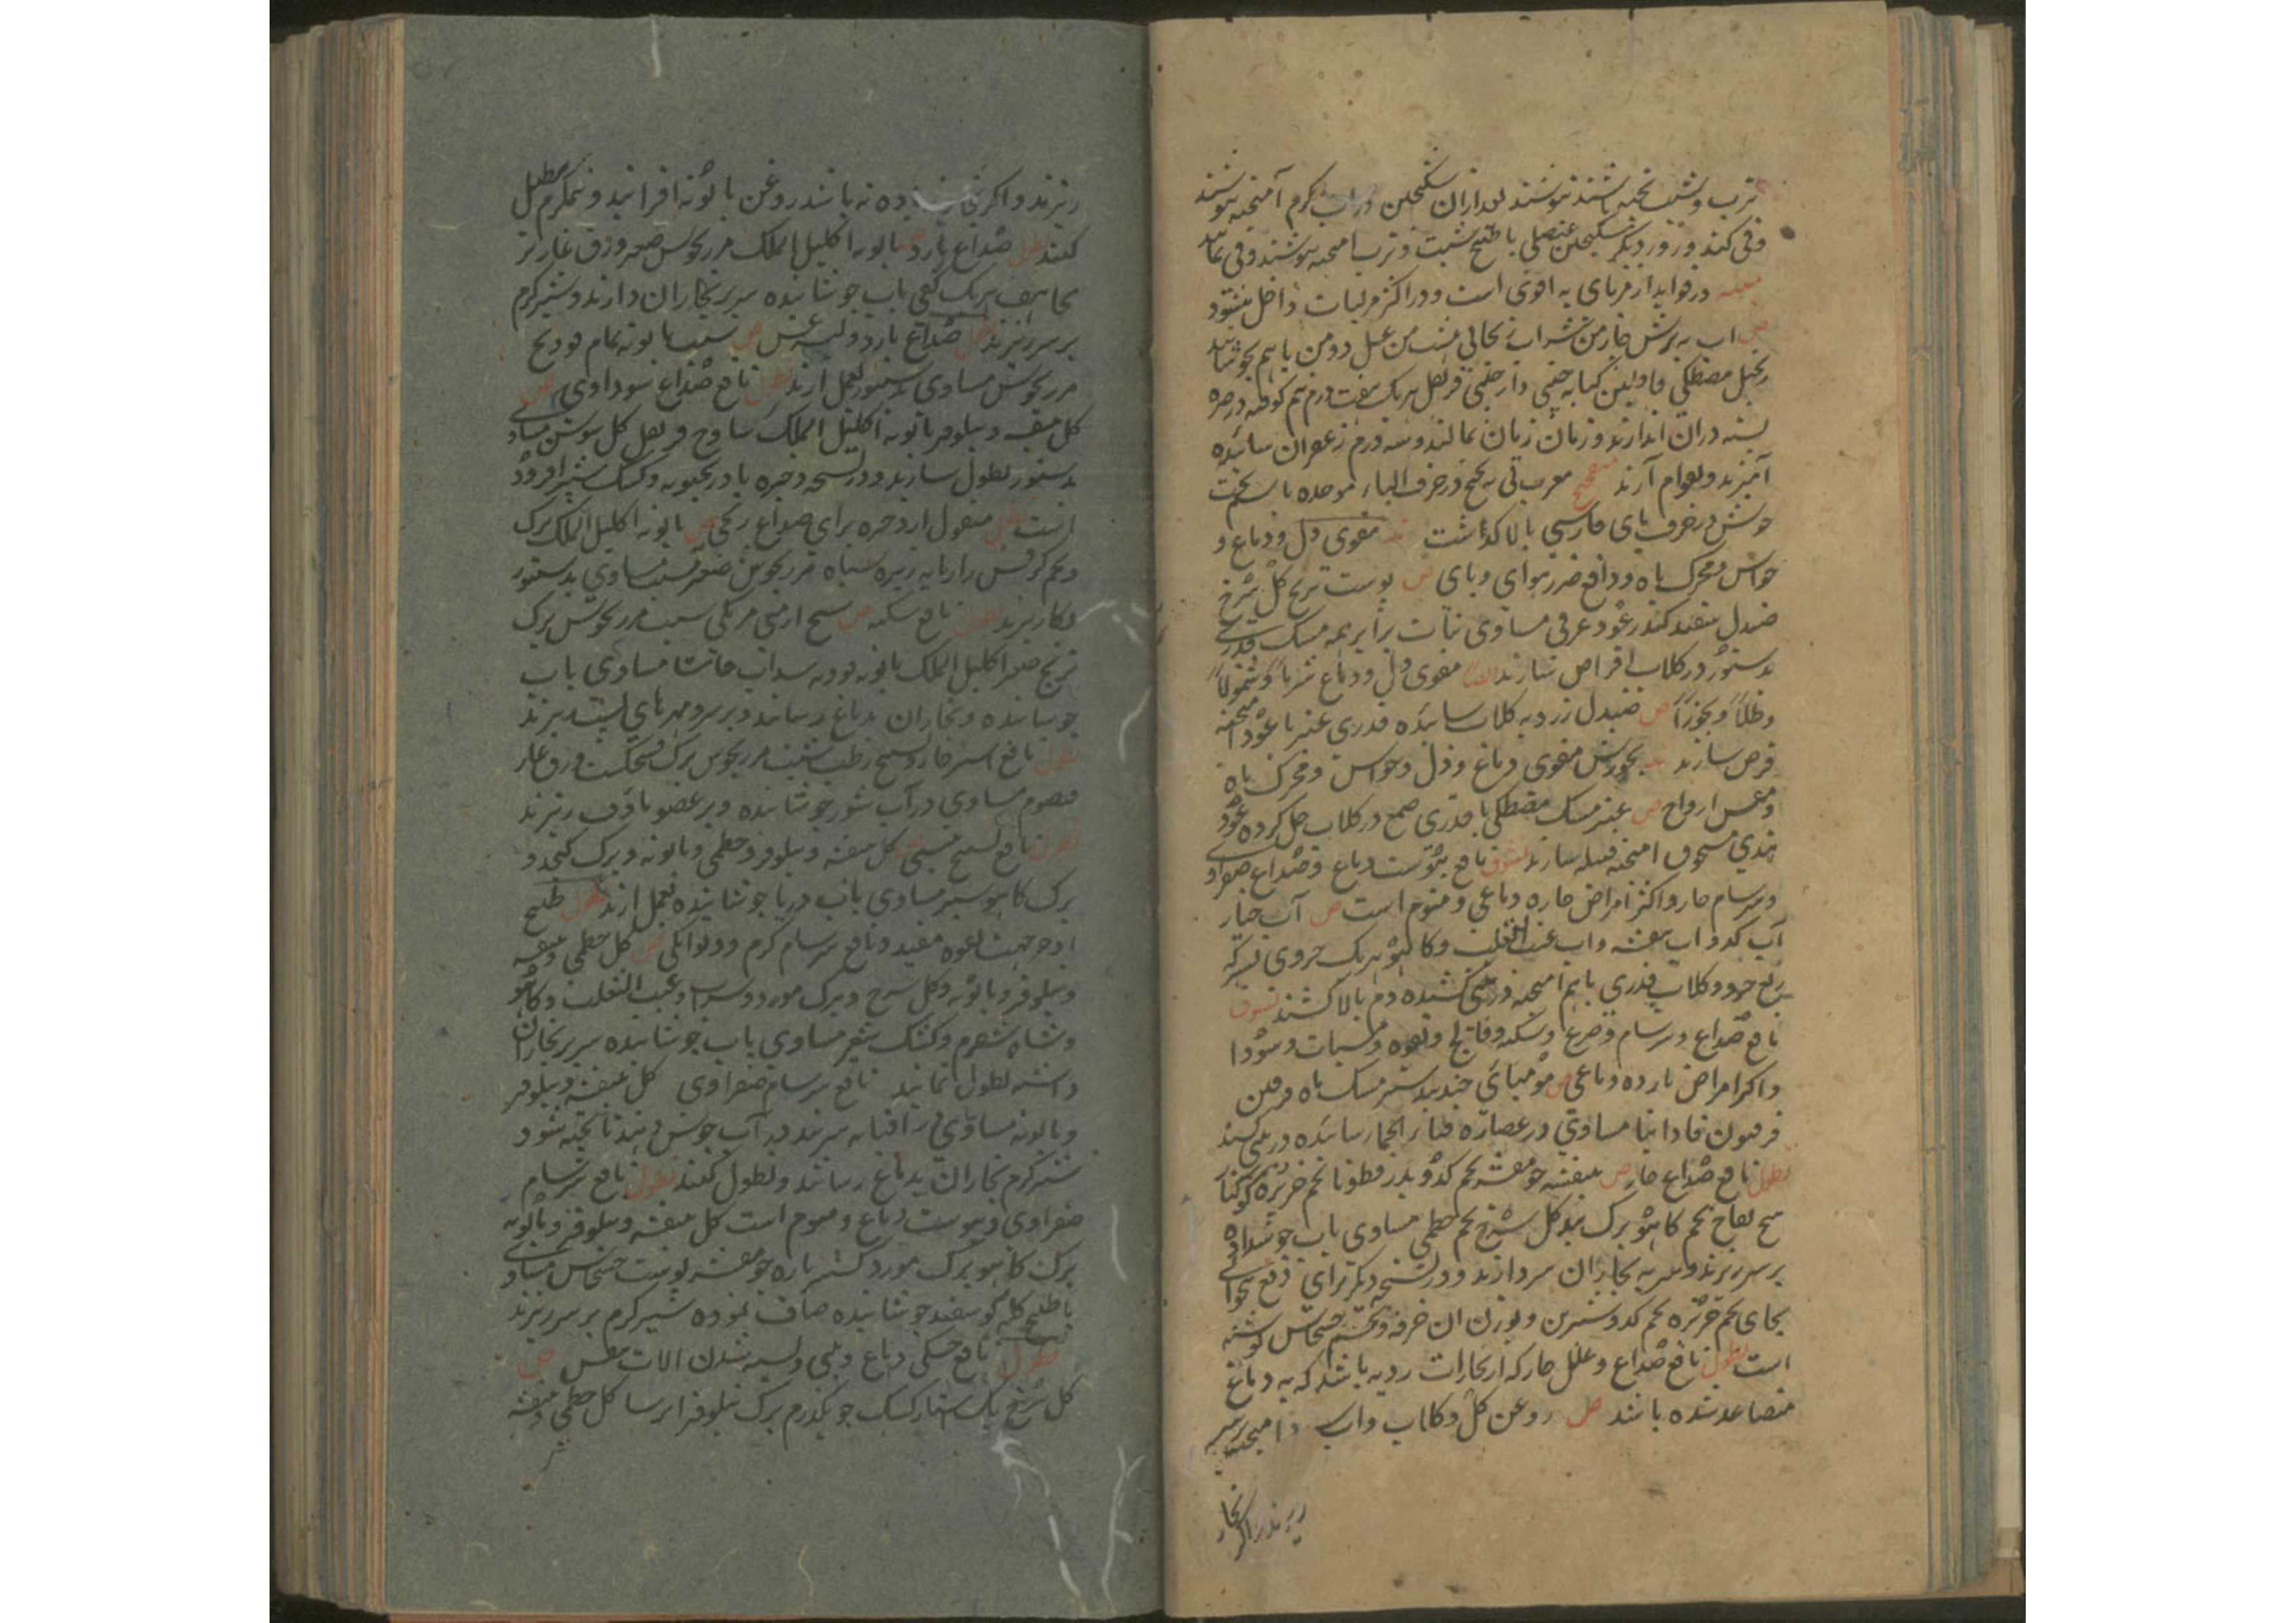 ترب و شبت پخته باشند بنوشند بعد ازان سکنجبین در آب گرم آمیخته بنوشند
و قی کنند و روز دیگر سکنجبین عنصلی با طبیخ شبت و ترب آمیخته بنوشند و قی نمایند
در فواید از مربای به اقوی است و در اکثر مرکبات داخل میشود
ص اب به ترش چار من شراب ریحانی من عسل دو من باهم بجوشانند
زنجبیل مصطکی قاقلین کبابه چینی دارچینی قرنفل هریک هفت درم نیم کوفته در صره
بسته دران اندازند و زمان زمان بمالند و سه درم زعفران سائیده
آمیزند و بقوام آرند معرب در حرف الباء موحده با
خوش در حرف بای فارسی بالا گذاشت مقوی دل و دماغ و
حواس و محرک باه و دافع ضرر هوای وبای ص پوست ترنج گل سرخ
صندل سفید کندر عود عرقی مساوی نبات برابر همه مسک قدری
بدستور در گلاب اقراص سازند مقوی دل و دماغ شرباً و شمولاً
و طلاً و بخوراً ص صندل زرد به گلاب سائیده قدری عنبر با عود آمیخته
قرص سازند بخورش مقوی دماغ و دل و حواس و محرک باه
و ارواح ص عنبر مسک مصطکی با قدری صمغ در گلاب حل کرده عود
هندی مسحوق آمیخته فتیله سازند نشوق نافع یبوست دماغ و صداع صفراوی
و سرسام حار و اکثر امراض حاره دماغی و منوم است ص آب خیار
آب کدو اب بنفشه و اب عنب الثعلب و کاهو هریک جزوی سرکه
ربع جزو و گلاب قدری باهم آمیخته در بینی کشیده دم بالا کشند نشوق
نافع صداع و سرسام و صرع و سکته و فالج و لقوه و سبات و سودا
و اکثر امراض بارده دماغی ص مومیائی جندبیدستر مسک
فرفیون مساوی در عصاره قثاء الحمار سائیده در بینی کشند
نطول نافع صداع حار ص بنفشه جو مقشر تخم کدو بذر قطونا تخم خرپزه کوکنار
بیخ لفاح تخم کاهو برگ بید گل سرخ تخم خطمی مساوی باب جوشداده
بر سر ریزند و سر به بخار آن سر دارند و در نسخه دیگر برای دفع بیخوابی
بجای تخم خرپزه تخم کدو شیرین و بوزن ان خرفه و تخم خشخاش نوشته
است نطول نافع صداع و علل حار که از بخارات ردیه باشد که به دماغ
متصاعد شده باشد ص روغن گل و گلاب و اب آمیخته بر سر
ریزند و اگر بخار
ریزند و اگر نه باشد روغن بابونه افزایند و نیمگرم نطول
کنند نطول صداع بارد بابونه اکلیل الملک مرزنجوش صعتر ورق غار
هریک کفی باب جوشانیده سر بر بخار ان دارند و شیر گرم
بر سر ریزند نطول صداع بارد ص شبت بابونه نمام فودنج
مرزنجوش مساوی بدستور بعمل ارند نطول نافع صداع سوداوی ص
گل بنفشه و نیلوفر بابونه اکلیل الملک ساذج قرنفل گل سوسن مساوی
بدستور نطول سازند و در نسخه ذخیره بادرنجبویه و کشک شعیر افزوده
است نطول منقول از ذخیره برای صداع ریحی ص بابونه اکلیل الملک برگ
و تخم کرفس رازیانه زیره سیاه مرزنجوش صعتر شبت مساوی بدستور
بکار برند نطول نافع سکته ص شیح ارمنی شبت مرزنجوش برگ
ترنج صعتر اکلیل الملک بابونه پودنه سداب حاشا مساوی باب
جوشانیده و بخار ان بدماغ رسانند و بر سر و مهرهای پشت ریزند
نطول نافع استرخا و تشنج رطب شبت مرزنجوش برگ پنجنگشت ورق غار
قیصوم مساوی در آب شور جوشانیده و بر عضو ماؤف ریزند
نطول نافع تشنج یبسی ص گل بنفشه و نیلوفر و خطمی و بابونه و برگ کنجد و
برگ کاهو سبز مساوی باب دریا جوشانیده بعمل ارند نطول طبیخ
اذخر جهت لقوه مفید و نافع سرسام گرم و دیوانگی ص گل خطمی و بنفشه
و نیلوفر و بابونه و گل سرخ و برگ مورد و سداب و عنب الثعلب و کاهو
و شاه سفرم و کشک شعیر مساوی باب جوشانیده سر بر بخار ان
داشته نطول نمایند نافع سرسام صفراوی گل بنفشه و نیلوفر
و بابونه مساوی در آفتابه سربند در آب جوش دهند تا پخته شود
شیر گرم بخار ان بدماغ رسانند و نطول کنند نطول نافع سرسام
صفراوی و یبوست دماغ و منوم است گل بنفشه و نیلوفر و بابونه
برگ کاهو برگ مورد جو مقشر پوست خشخاش مساوی
با طبیخ کله گوسفند جوشانیده صاف نموده شیر گرم بر سر ریزند
نطول نافع خشکی دماغ و بینی و بسته شدن الات تنفس ص
گل سرخ یک استار کشک جو یکدرم برگ نیلوفر ایرسا گل خطمی و بنفشه